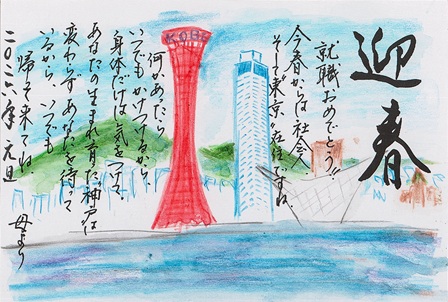 迎春
就職おめでとう!!
今春からは社会人
そして東京在住ですね。
何かあったら
いつでもかけつけるから、
身体だけは気をつけて。
あなたの生まれ育った神戸は
変わらずあなたを待って
いるから、いつでも
帰って来てね。
二〇二六年 元旦
母より
KOBE